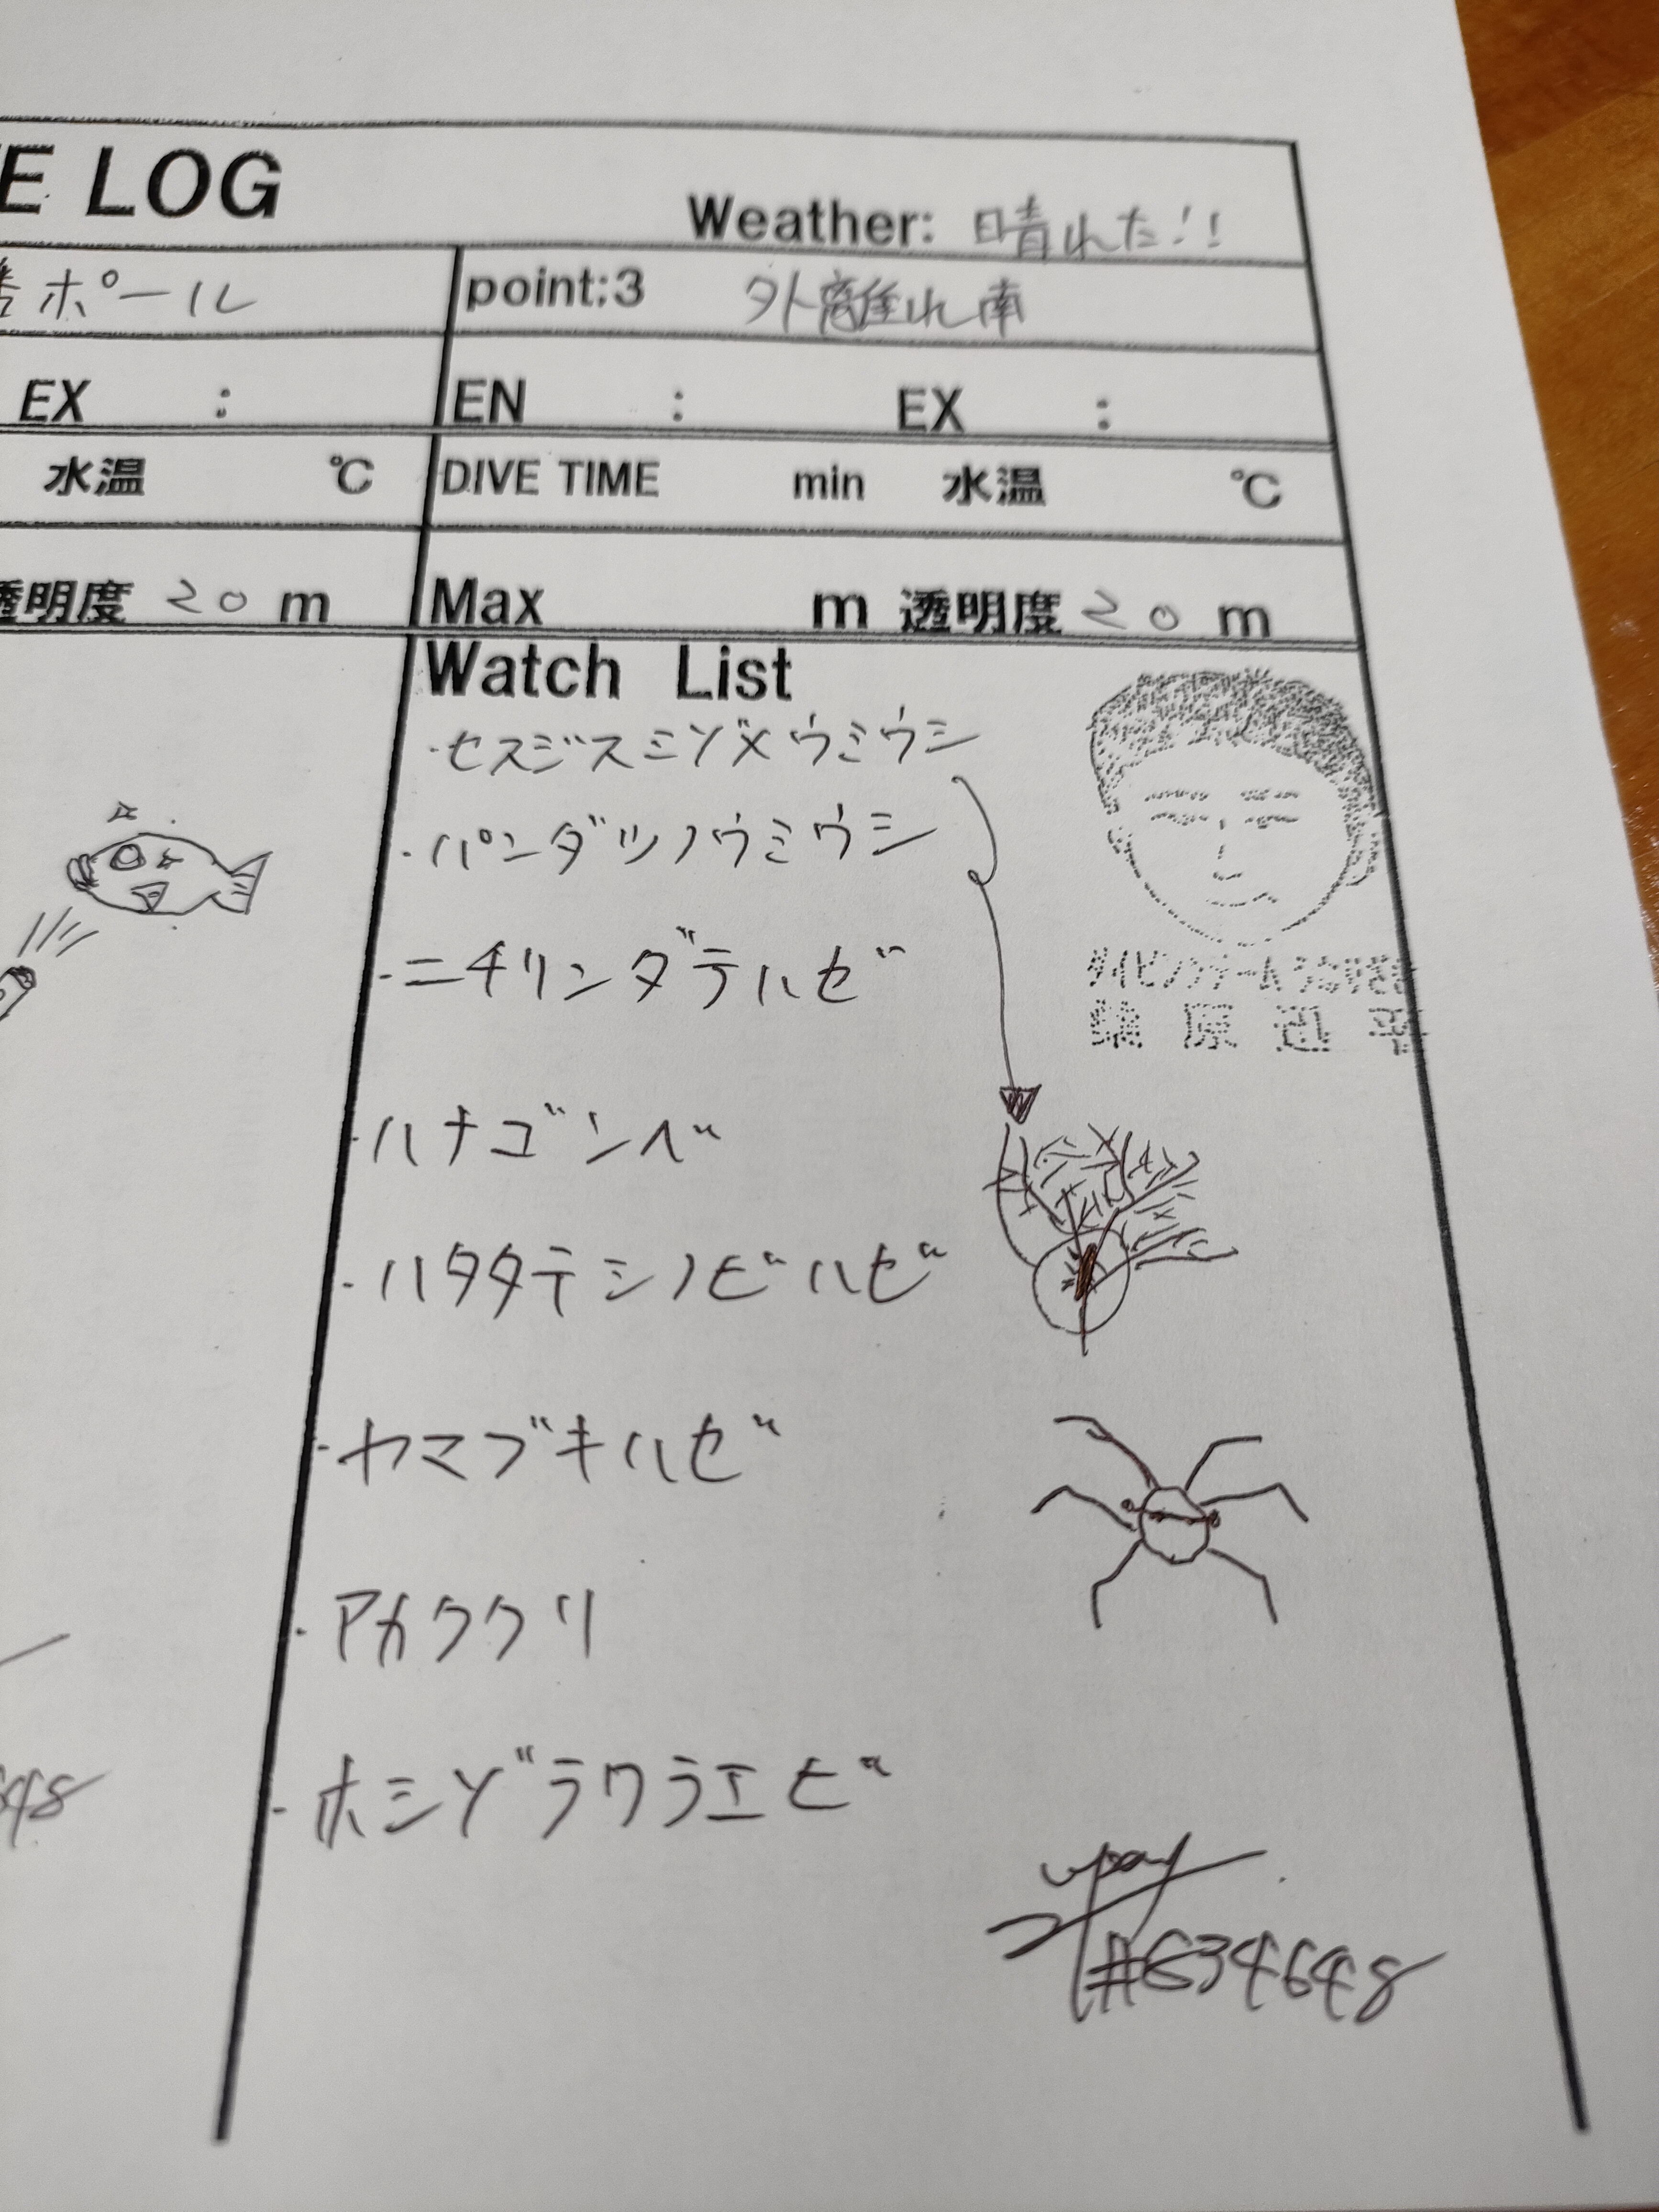 E LOG
Weather: 晴れた!!
ポール
point:3 外離れ南
EX :
EN : EX :
水温 ℃
DIVE TIME min 水温 ℃
透明度 20 m
Max m 透明度 20 m
Watch List
・セスジスミゾメウミウシ
・パンダツノウミウシ
・ニチリンダテハゼ
・ハナゴンベ
・ハタタテシノビハゼ
・ヤマブキハゼ
・アカククリ
・ホシゾラワラエビ
648
#634648